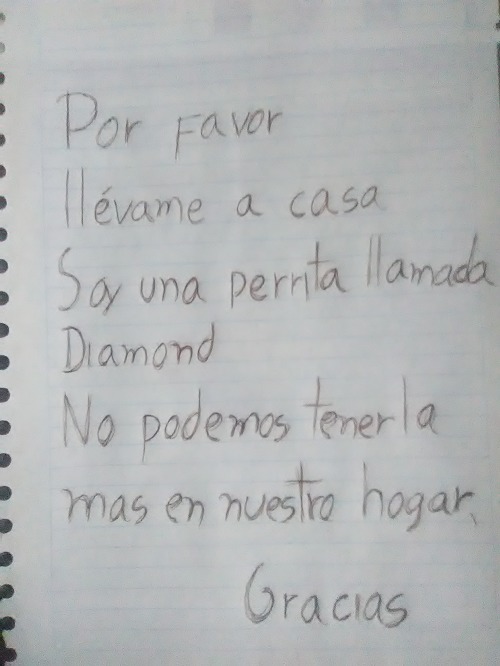 Por Favor
llévame a casa
Soy una perrita llamada
Diamond
No podemos tenerla
mas en nuestro hogar.
Gracias